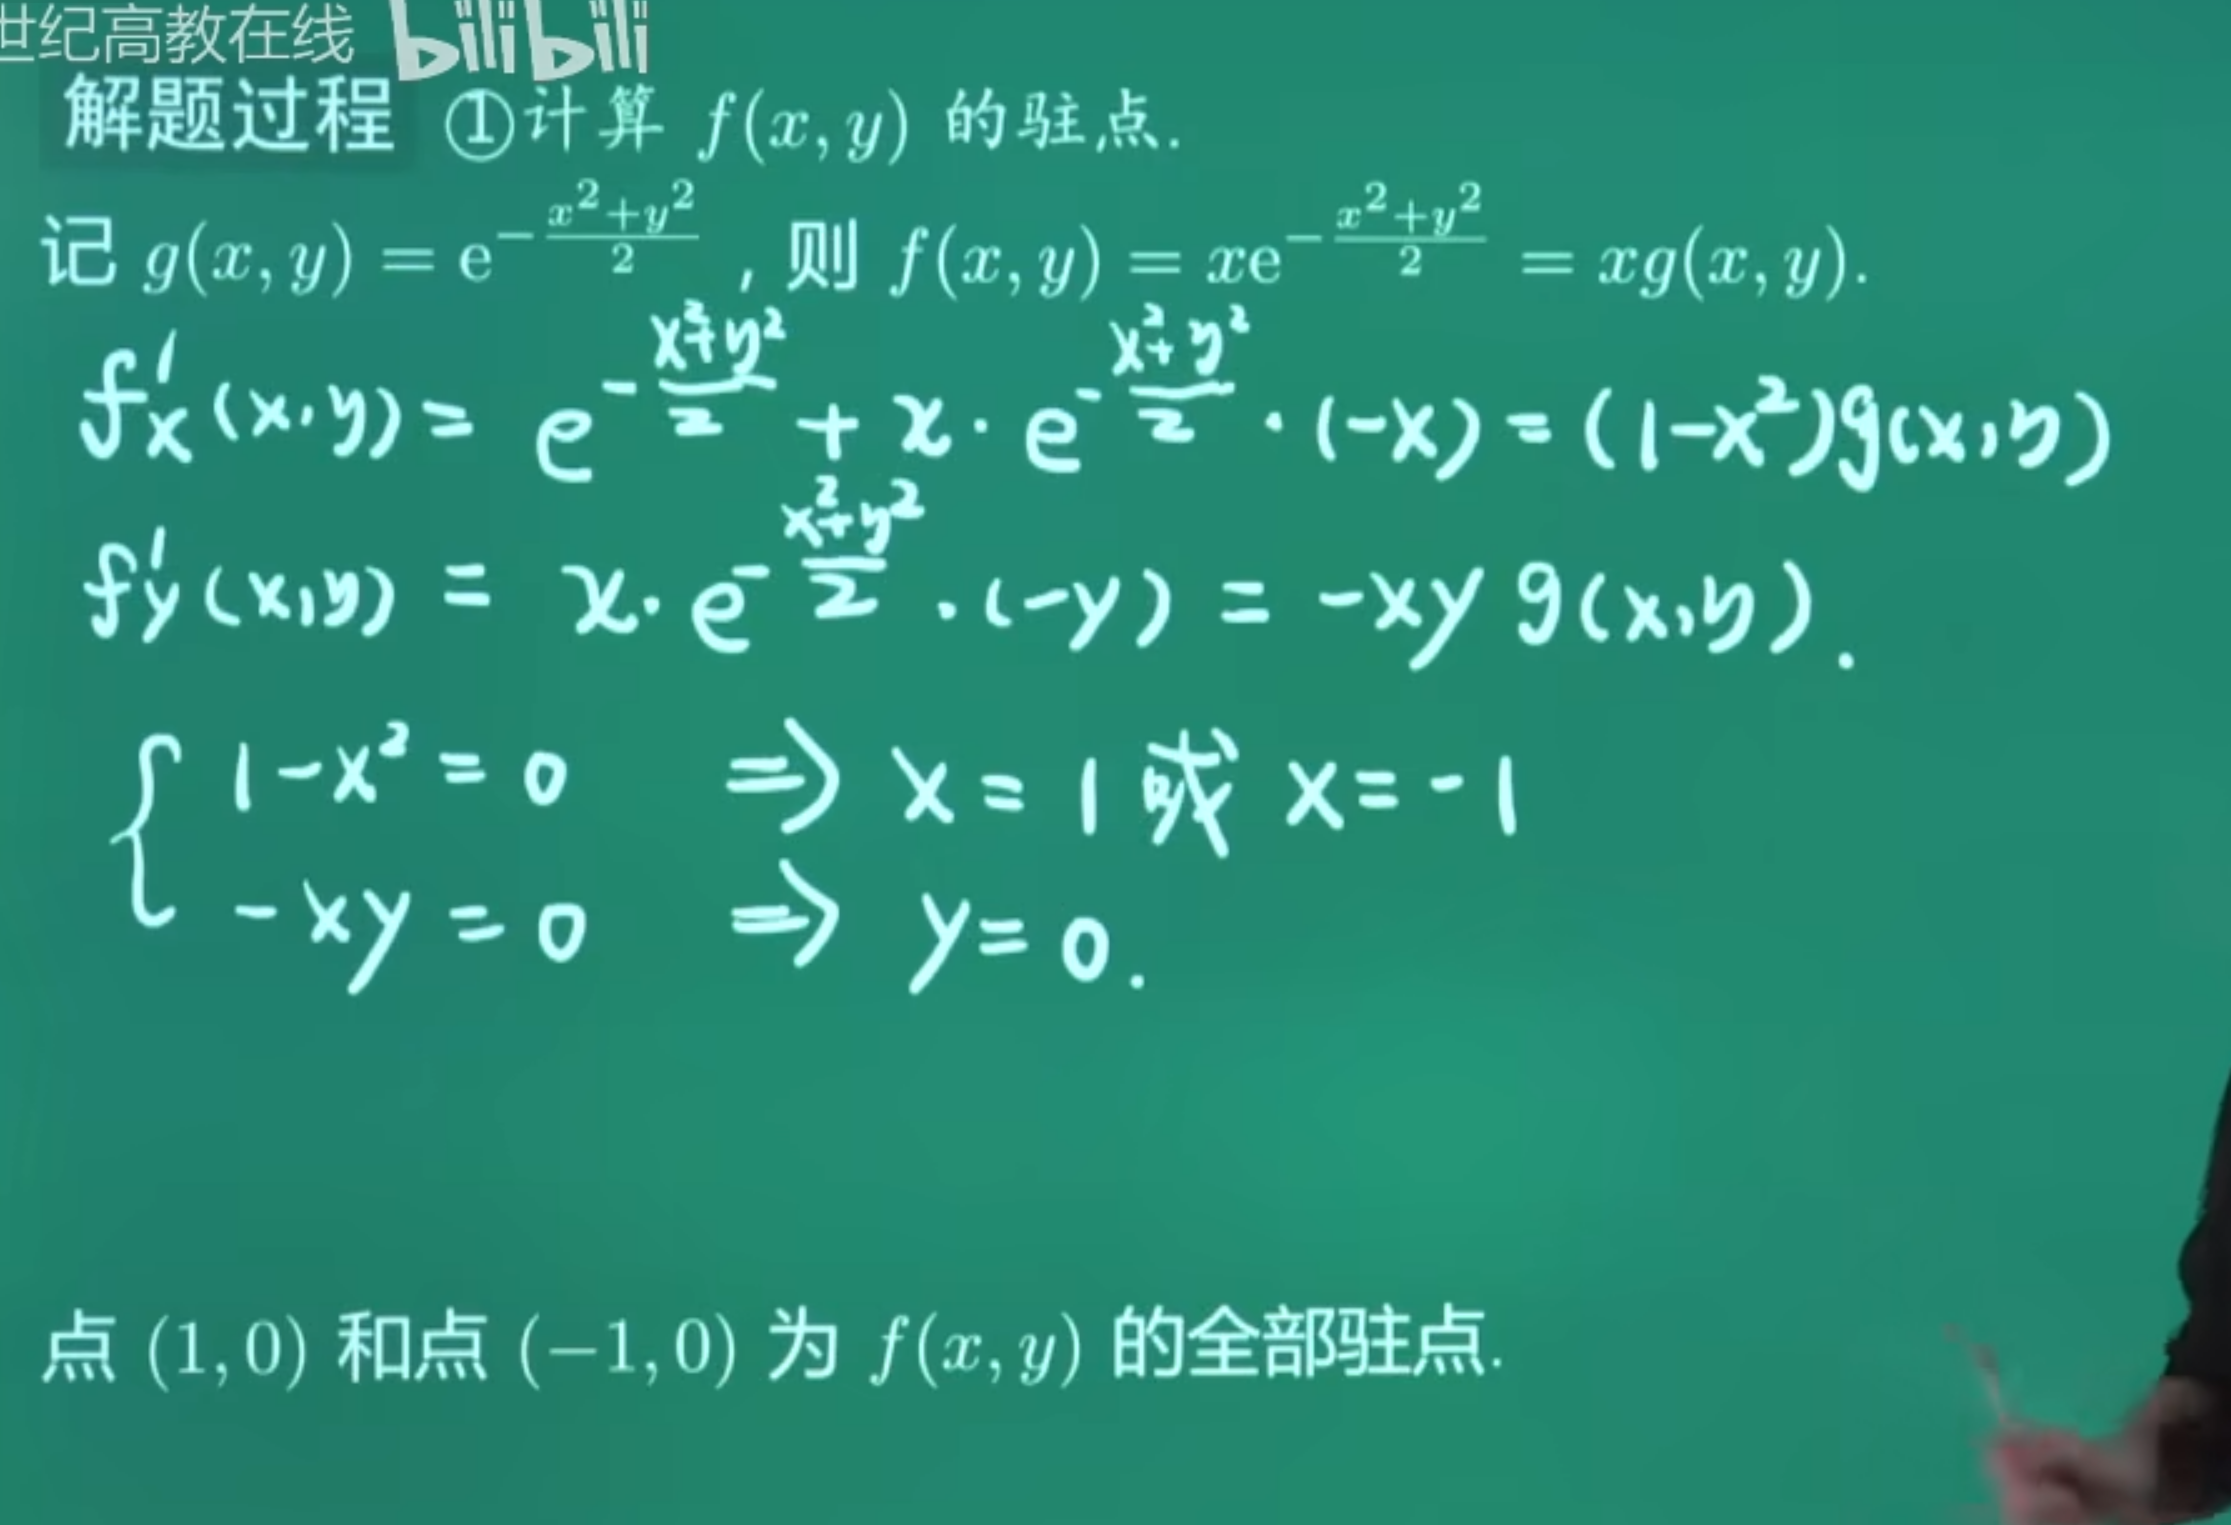 世纪高教在线 bilibili
解题过程 ①计算 f(x, y) 的驻点.
记 g(x, y) = e^{-\frac{x^2+y^2}{2}}, 则 f(x, y) = xe^{-\frac{x^2+y^2}{2}} = xg(x, y).
f'_x(x,y) = e^{-\frac{x^2+y^2}{2}} + x·e^{-\frac{x^2+y^2}{2}}·(-x) = (1-x^2)g(x,y)
f'_y(x,y) = x·e^{-\frac{x^2+y^2}{2}}·(-y) = -xy g(x,y).
{ 1-x^2 = 0 ⇒ x = 1 或 x = -1
-xy = 0 ⇒ y = 0.
点 (1, 0) 和点 (−1, 0) 为 f(x, y) 的全部驻点.